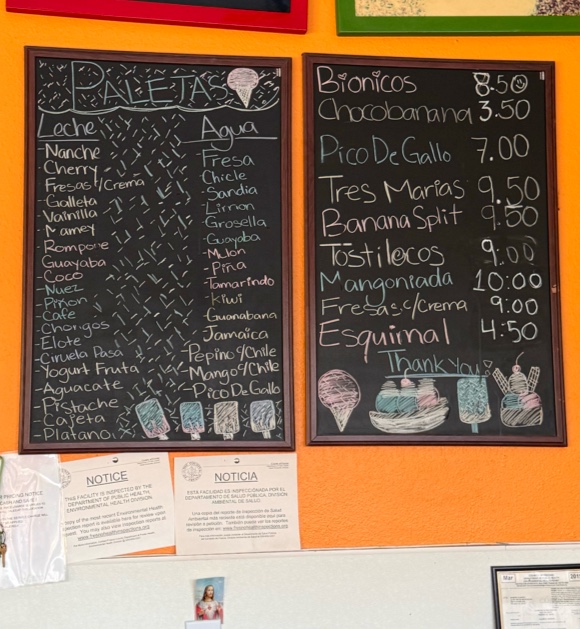 PALETAS
Leche
-Nanche
Cherry
-Fresas c/Crema
-Galleta
-Vainilla
-Mamey
-Rompope
-Guayaba
-Coco
-Nuez
-Piñon
-Cafe
-Chongos
-Elote
-Ciruela Pasa
-Yogurt Fruta
-Aguacate
-Pistache
-Cajeta
-Platano
Agua
-Fresa
-Chicle
-Sandia
-Limon
-Grosella
-Guayaba
-Melon
-Piña
-Tamarindo
-Kiwi
-Guanabana
Jamaica
-Pepino c/Chile
-Mango c/Chile
-Pico De Gallo
Bionicos 8.50
Chocobanana 3.50
Pico De Gallo 7.00
Tres Marias 9.50
Banana Split 9.50
Tostilocos 9:00
Mangoniada 10:00
Fresas c/Crema 9:00
Esquimal 4:50
Thank you!
NOTICE
THIS FACILITY IS INSPECTED BY THE
DEPARTMENT OF PUBLIC HEALTH,
ENVIRONMENTAL HEALTH DIVISION
NOTICIA
ESTA FACILIDAD ES INSPECCIONADA POR EL
DEPARTAMENTO DE SALUD PUBLICA, DIVISION
AMBIENTAL DE SALUD
Mar